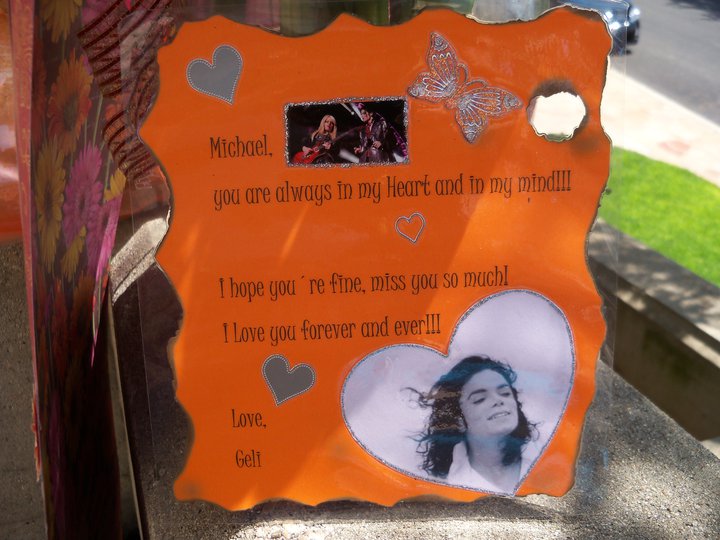 Michael,
you are always in my Heart and in my mind!!!
I hope you´re fine, miss you so much!
I Love you forever and ever!!!
Love,
Geli